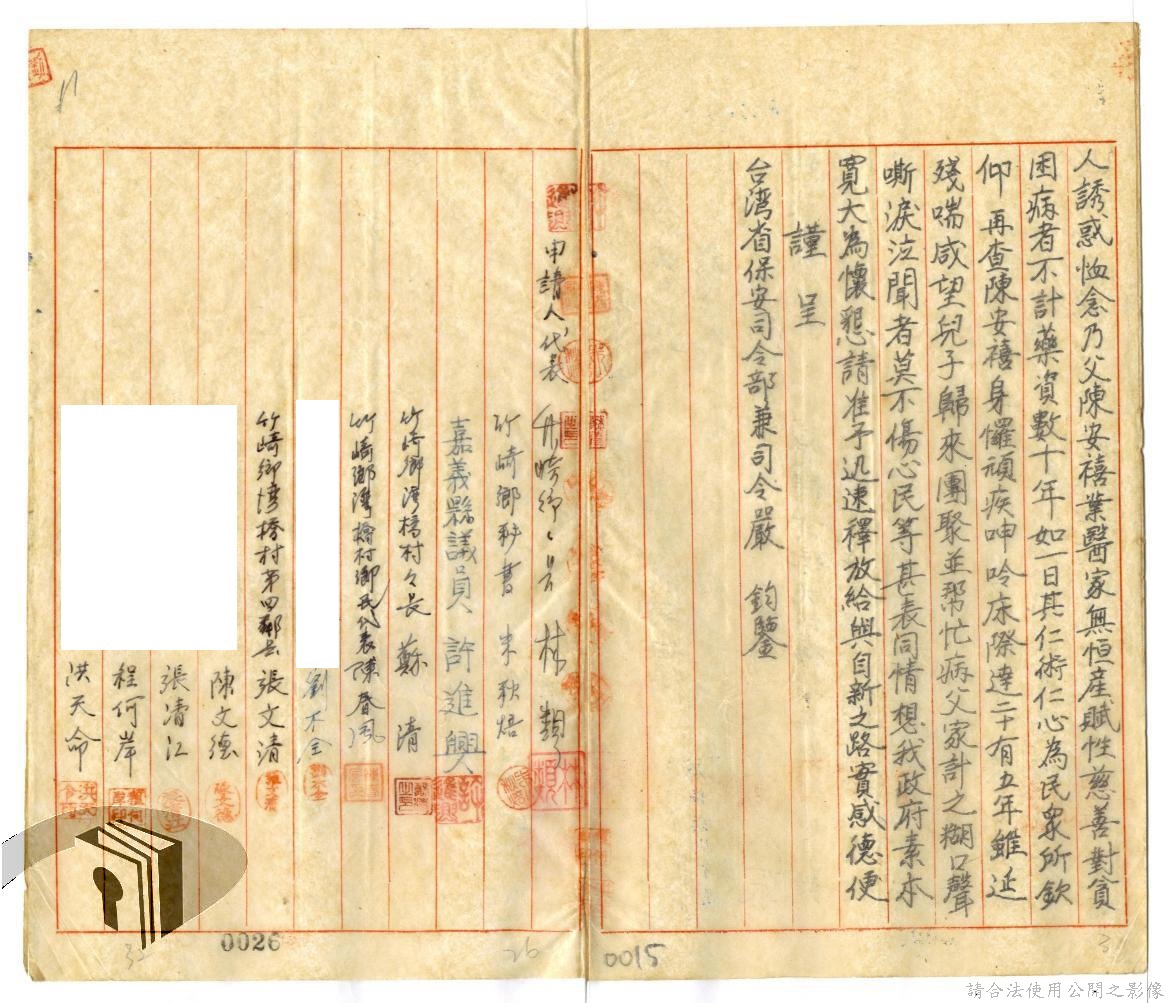 人誘惑恤念乃父陳安禧業醫家無恒産賦性慈善對貧
困病者不計藥資數十年如一日其仁術仁心為民衆所欽
仰　再查陳安禧身懼頑疾呻吟床際達二十有五年雖延
殘喘咸望兒子歸來團聚並帮忙病父家計之糊口聲
嘶淚泣聞者莫不傷心民等甚表同情想我政府素本
寬大為懷懇請准予迅速釋放給與自新之路實感德便
謹呈
台湾省保安司令部兼司令嚴　鈞鑒
申請人代表　竹崎鄉々長　林
竹崎鄉秘書
嘉義縣議員　許進興
竹崎鄉湾橋村々長　蘇清
竹崎鄉灣橋村鄉民代表陳春風
劉不全
竹崎鄉湾橋村第四鄰長　張文清
陳文德
張清江
程何岸
洪天命
0026
26
0015
3
請合法使用公開之影像